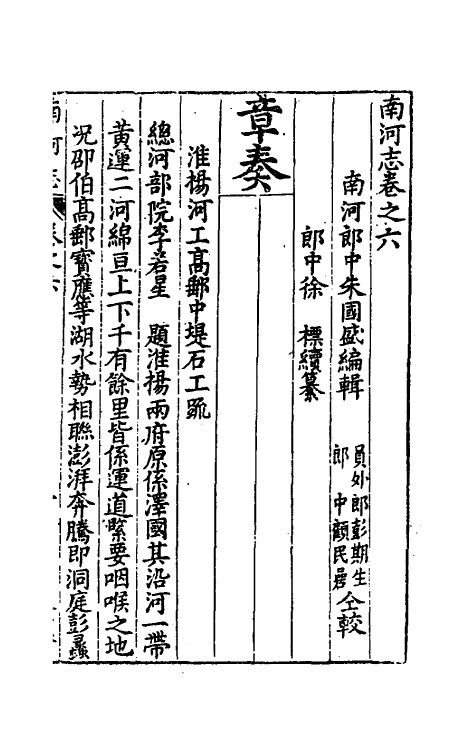 南河志卷之六
南河郎中朱國盛編輯
員外郎彭期生
郎中顧民碞
仝較
郎中徐 標續纂
章奏
淮揚河工高郵中堤石工䟽
總河部院李若星 題淮揚兩府原係澤國其沿河一帶
黃運二河綿亘上下千有餘里皆係運道緊要咽喉之地
况邵伯高郵寳應等湖水勢相聯澎湃奔騰即洞庭彭蠡
南河志 卷之六